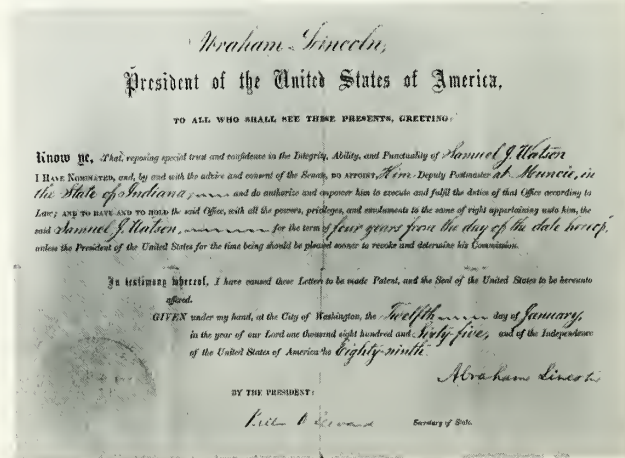 Abraham Lincoln,
President of the United States of America,
TO ALL WHO SHALL SEE THESE PRESENTS, GREETING:
Know ye, That, reposing special trust and confidence in the Integrity, Ability, and Punctuality of Samuel J. Watson
I HAVE NOMINATED, and, by and with the advice and consent of the Senate, DO APPOINT, Him Deputy Postmaster at Muncie, in
the State of Indiana, and do authorize and empower him to execute and fulfil the duties of that Office according to
Law; AND TO HAVE AND TO HOLD the said Office, with all the powers, privileges, and emoluments to the same of right appertaining unto him, the
said Samuel J. Watson, for the term of four years from the day of the date hereof,
unless the President of the United States for the time being should be pleased sooner to revoke and determine his Commission.
In testimony whereof, I have caused these Letters to be made Patent, and the Seal of the United States to be hereunto
affixed.
GIVEN under my hand, at the City of Washington, the Twelfth day of January,
in the year of our Lord one thousand eight hundred and Sixty-five, and of the Independence
of the United States of America the Eighty-ninth.
Abraham Lincoln
BY THE PRESIDENT:
Seward Secretary of State.